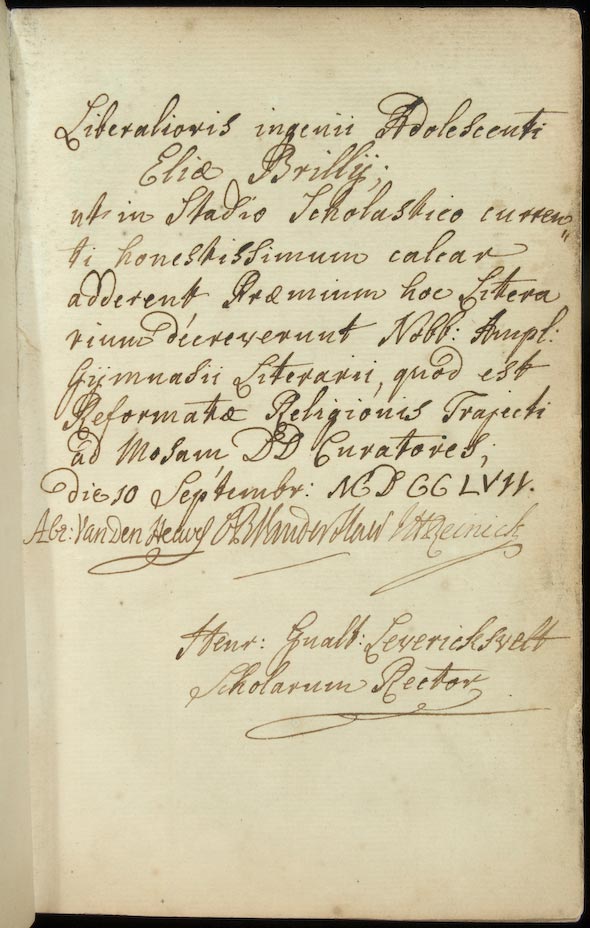 Liberalioris ingenii Adolescenti
Eliæ Brillij;
ut in Stadio Scholastico curren„
ti honestissimum calcar
adderent Præmium hoc Litera
rium decreverunt Nobb: Ampl:
Gijmnasii Literarii, quod est
Reformatæ Religionis Trajecti
ad Mosam DD Curatores;
die 10 Septembr: MDCCLVII.
Abr: Van Den Heuvel
Henr: Gualt: Leverickvelt
Scholarum Rector